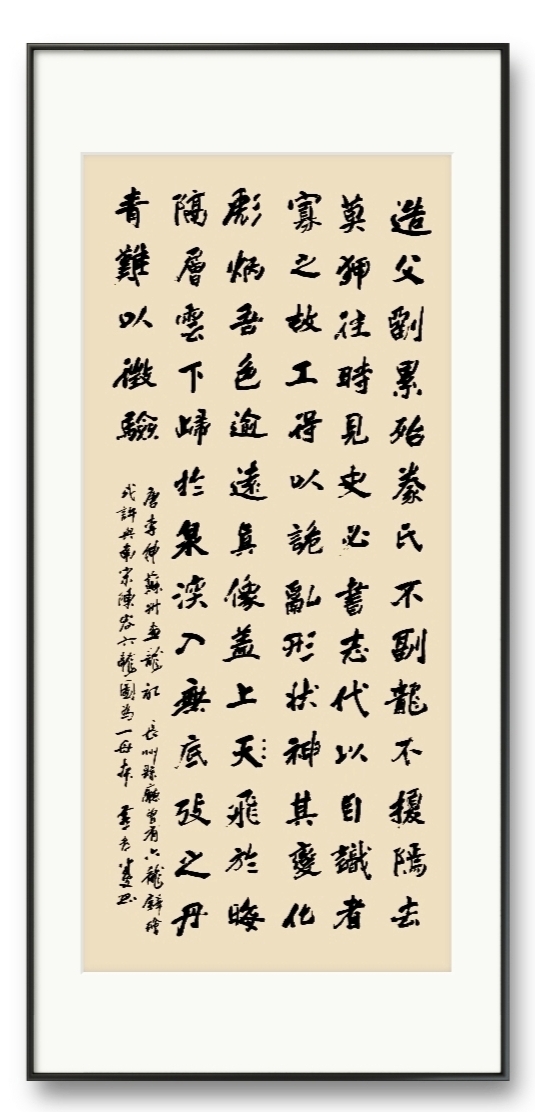 造父劉累殆豢氏不副龍不擾隔去
莫狎往時見史必書志代以目識者
寡之故工得以詭亂形狀神其變化
彪炳吾色逾遠真像蓋上天飛於晦
隔層雲下歸於泉深入無底攷之丹
青難以徵驗
唐李紳蘇州畫龍記 長州縣廳曾有六龍壁繪
或許與南宋陳容六龍圖為一母本